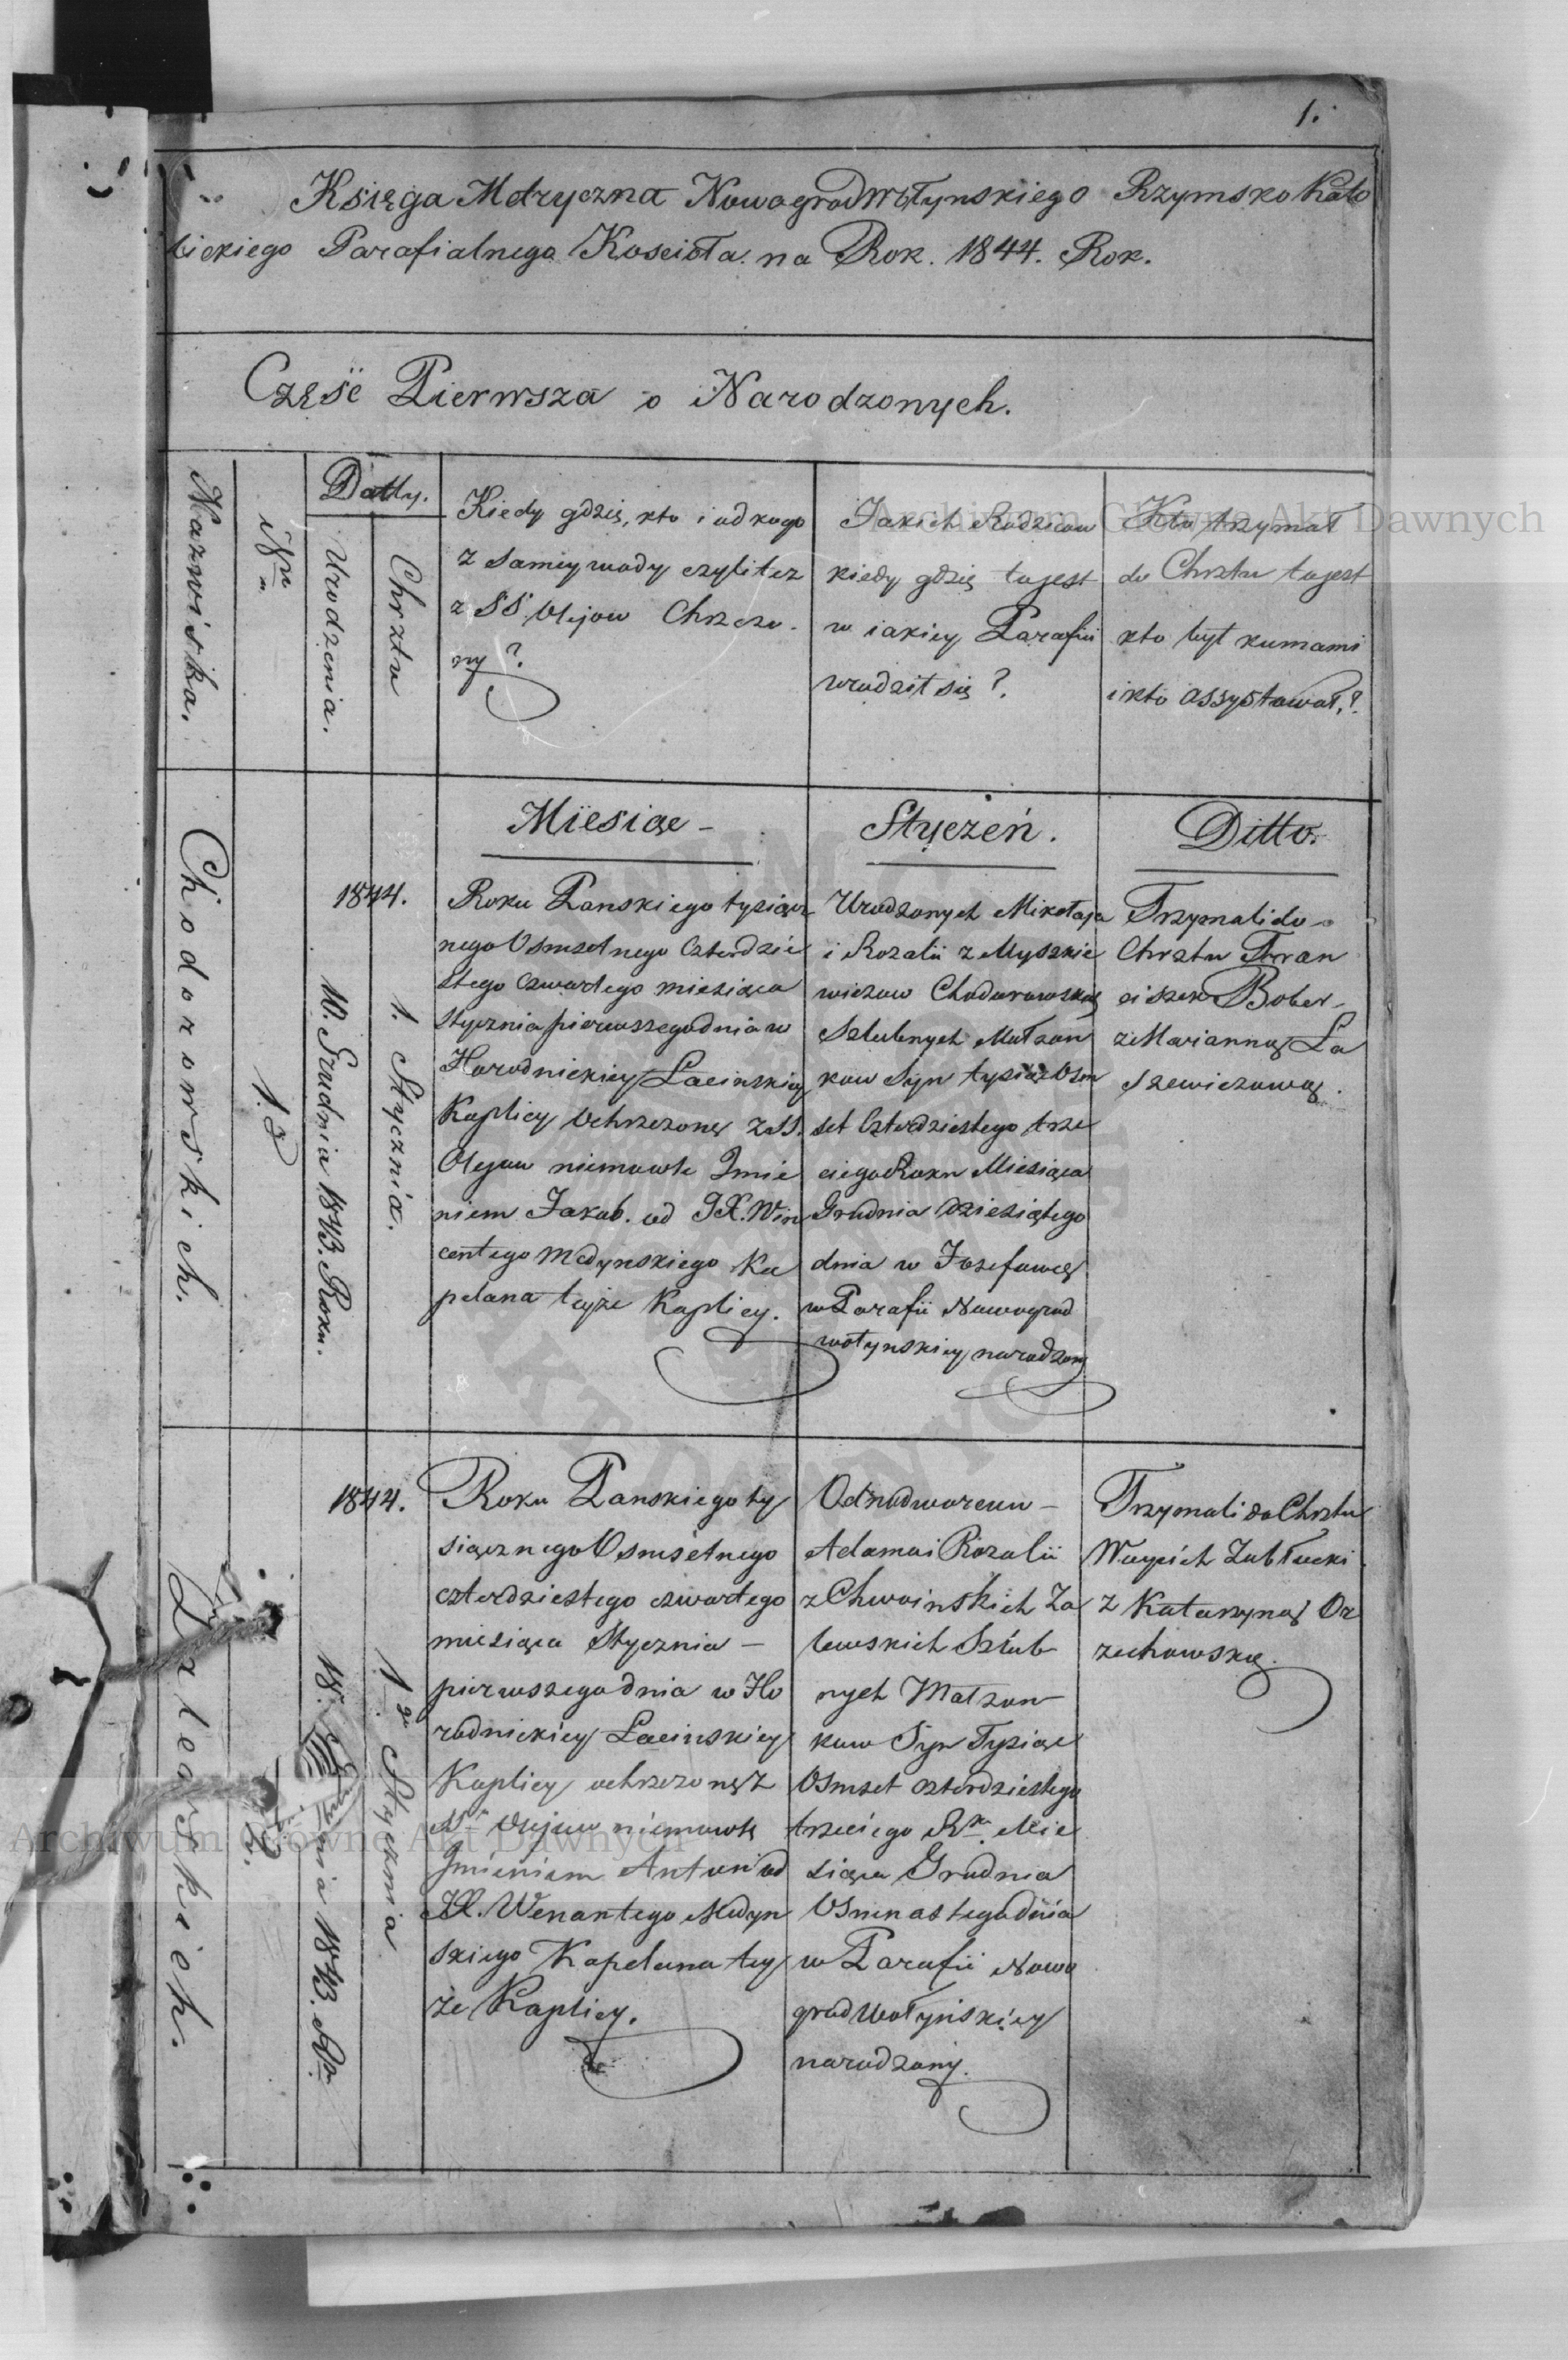 1.
Księga Metryczna Nowogradwołynskiego Rzymsko Kato
lickiego Parafialnego Koscioła na Rok. 1844. Rok.
Część Pierwsza o Narodzonych.
Nazwiska.
Nro
Datty.
Urodzenia.
Chrztu
Kiedy gdzie, kto i od kogo
z samey wody czyli tez
z SS. Olejow Chrzczo
ny?
Jakich Rodzicow
kiedy gdzie to jest
w iakiey Parafii
urodził się?
Kto trzymał
do Chrztu to jest
kto był kumami
i kto assystował?
Miesiąc -
Styczeń.
Ditto.
Chodorowskich.
1.
1844.
10. Grudnia 1843. Roku.
1. Stycznia.
Roku Panskiego tysiącz
nego Osmsetnego Czterdzie
stego Czwartego miesiąca
Stycznia pierwszego dnia w
Horodnickiey Łacinskiey
Kaplicy Ochrzczone z SS.
Olejow niemowle Imie
niem Jakub. od JX. Win
centego Medynskiego Ka
pelana teyże Kaplicy.
Urodzonych Mikołaja
i Rozalii z Myszkie
wiczow Chodorowskich
Szlubnych Małzon
kow Syn tysiąc Osm
set Czterdziestego trze
ciego Roku Miesiąca
Grudnia dziesiątego
dnia w Jozefowce
w Parafii Nowograd
wołynskiey narodzony
Trzymali do
Chrztu Fran
ciszek Bober
z Marianną La
szewiczową.
Zalewskich.
2.
1844.
18. Grudnia 1843. Rn.
1go Stycznia
Roku Panskiego ty
siącznego Osmsetnego
czterdziestego czwartego
miesiąca Stycznia -
pierwszego dnia w Ho
rodnickiey Łacinskiey
Kaplicy ochrzczone z
SS. Olejow niemowle
Imieniem Antoni od
JX. Wenantego Medyn
skiego Kapelana tey
że Kaplicy.
Odnodworcow -
Adama i Rozalii
z Chwoinskich Za
lewskich Szlub
nych Małzon
kow Syn Tysiąc
Osmset czterdziestego
trzeciego Rn. Mie
siąca Grudnia
Osmnastego dnia
w Parafii Nowo
grad wołyńskiey
narodzony.
Trzymali do Chrztu
Woyciéch Zabłucki
z Katarzyną Or
zechowską.
Archiwum Główne Akt Dawnych
Archiwum Główne Akt Dawnych